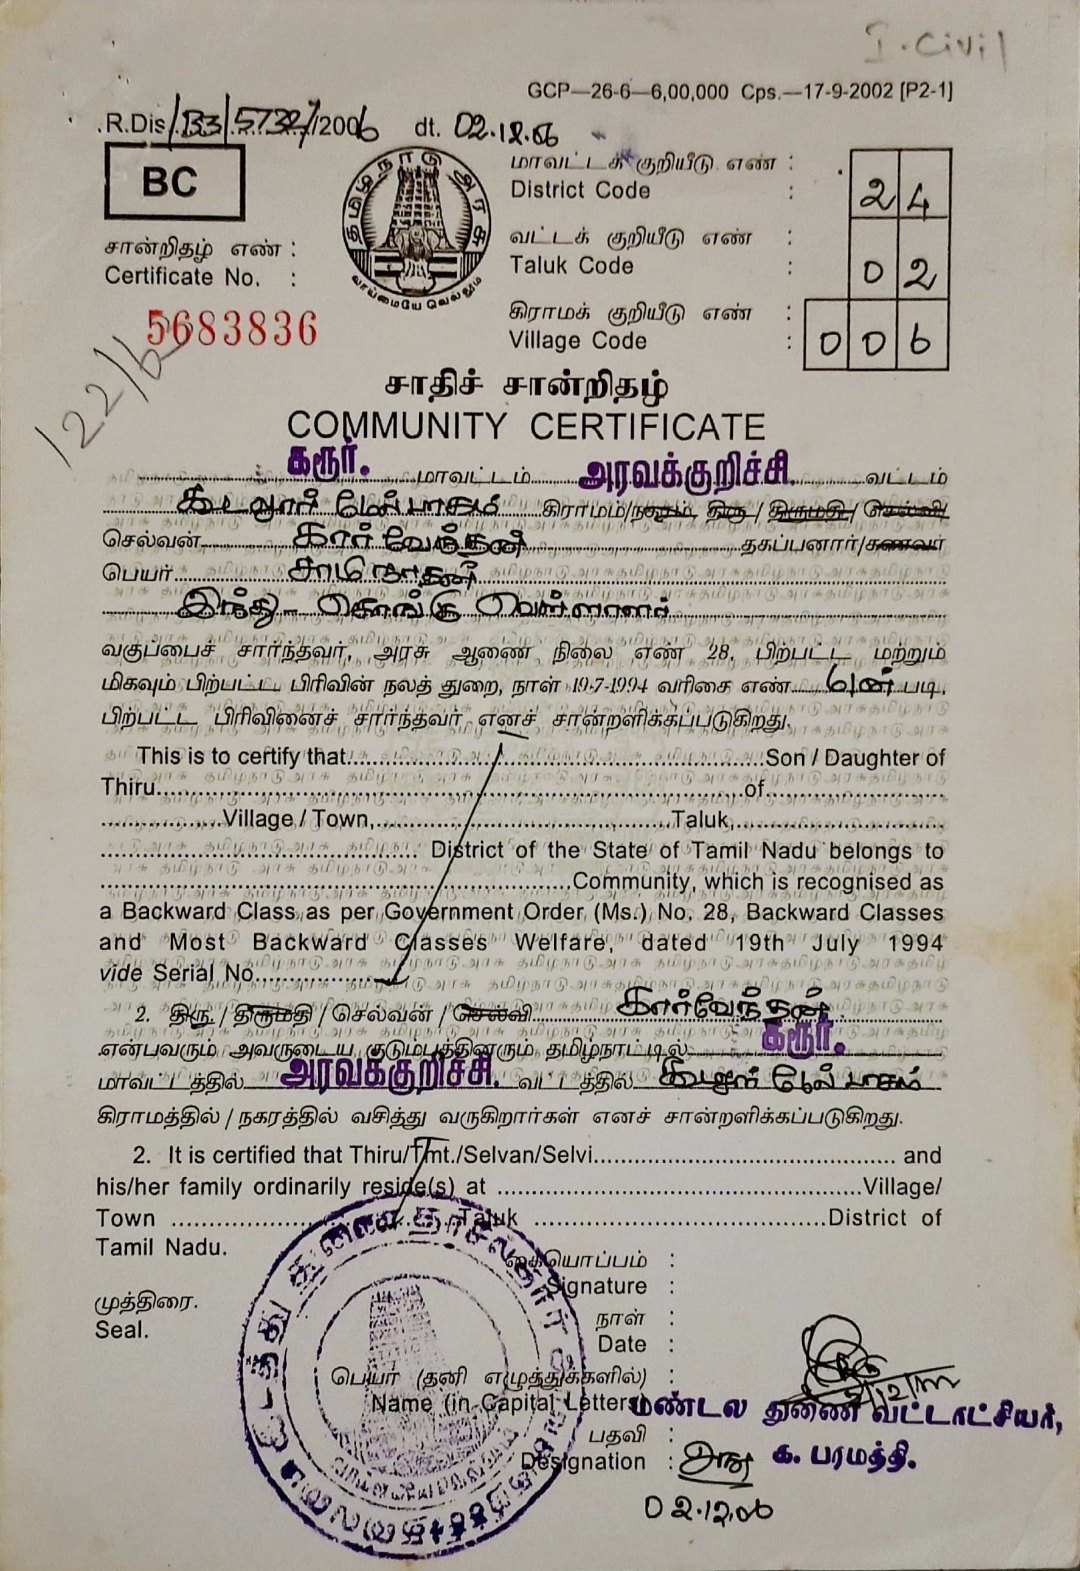 I. Civil
GCP—26-6—6,00,000 Cps.—17-9-2002 [P2-1]
R.Dis/B3/5732/2006 dt. 02.12.06
BC
தமிழ்நாடு அரசு
வாய்மையே வெல்லும்
மாவட்டக் குறியீடு எண் :
District Code : 24
வட்டக் குறியீடு எண் :
Taluk Code : 02
கிராமக் குறியீடு எண் :
Village Code : 006
சான்றிதழ் எண் :
Certificate No. :
5683836
122/6
சாதிச் சான்றிதழ்
COMMUNITY CERTIFICATE
கரூர். மாவட்டம் அரவக்குறிச்சி. வட்டம்
கூடலூர் மேல்பாகம் கிராமம்/நகரம், திரு / திருமதி / செல்வி/
செல்வன் கார்வேந்தன் தகப்பனார்/கணவர்
பெயர் சாமிநாதன்
இந்து - கொங்கு வெள்ளாளர்
வகுப்பைச் சார்ந்தவர், அரசு ஆணை நிலை எண் 28, பிற்பட்ட மற்றும்
மிகவும் பிற்பட்ட பிரிவின் நலத் துறை, நாள் 19-7-1994 வரிசை எண் படி,
பிற்பட்ட பிரிவினைச் சார்ந்தவர் எனச் சான்றளிக்கப்படுகிறது.
This is to certify that Son / Daughter of
Thiru of
Village / Town, Taluk,
District of the State of Tamil Nadu belongs to
Community, which is recognised as
a Backward Class as per Government Order (Ms.) No. 28, Backward Classes
and Most Backward Classes Welfare, dated 19th July 1994
vide Serial No.
2. திரு / திருமதி / செல்வன் / செல்வி கார்வேந்தன்
என்பவரும் அவருடைய குடும்பத்தினரும் தமிழ்நாட்டில் கரூர்.
மாவட்டத்தில் அரவக்குறிச்சி. வட்டத்தில் கூடலூர் மேல்பாகம்
கிராமத்தில் / நகரத்தில் வசித்து வருகிறார்கள் எனச் சான்றளிக்கப்படுகிறது.
2. It is certified that Thiru/Tmt./Selvan/Selvi and
his/her family ordinarily reside(s) at Village/
Town Taluk District of
Tamil Nadu.
கையொப்பம் :
Signature :
முத்திரை.
Seal.
நாள் :
Date :
பெயர் (தனி எழுத்துக்களில்) :
Name (in Capital Letters)
மண்டல துணை வட்டாட்சியர்,
பதவி :
க. பரமத்தி.
Designation :
02.12.06